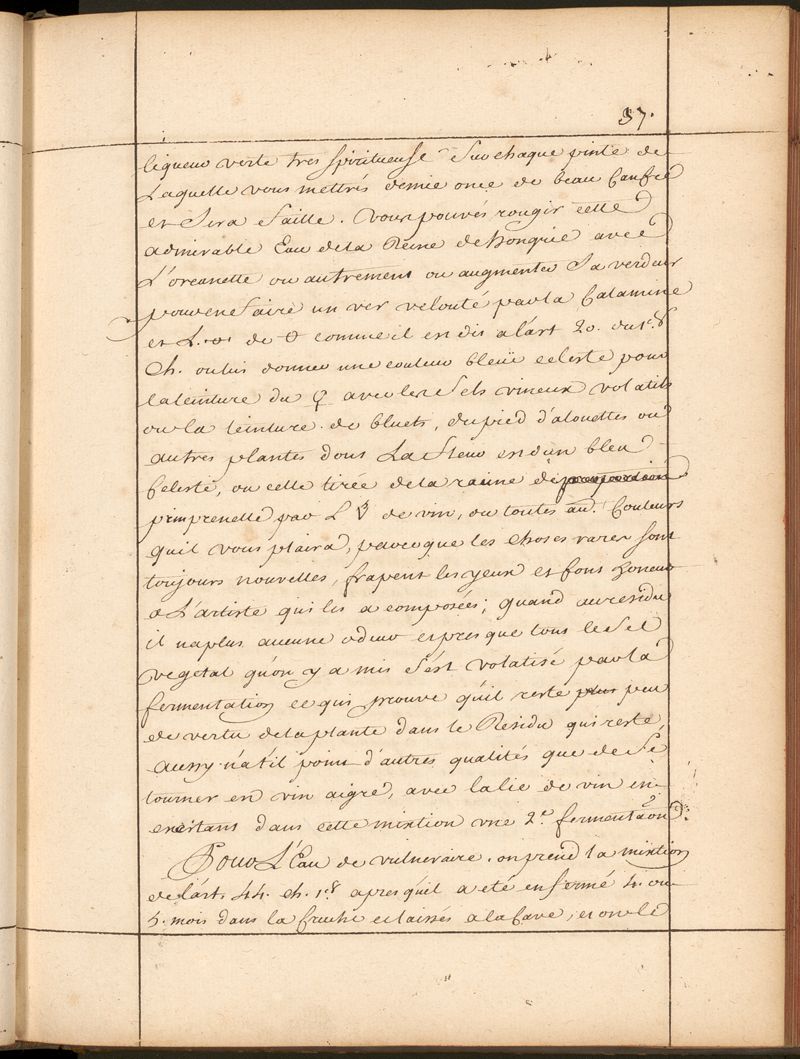 37.
liqueur verte tres spiritueuse sur chaque pinte de
Laquelle vous mettrés demie once de beau Canfre
et sera faitte. vous pouvés rougir cette
admirable Eau dela Reine de hongrie avec
L'orcanette ou autrement ou augmenter sa verdeur
pour en faire un ver velouté par la Calamine
et de comme il en dis a l'art 20. du 1.er
Ch. ou lui donner une couleur bleüe celeste pour
la teinture du ♀ avec les sels vineux volatils
ou la teinture de bluets, du pied d'alouettes ou
autres plantes dont La fleur en d'un bleu
Celeste, ou celle tirée de la racine de
pimprenelle par L de vin, ou toutes au. Couleurs
quil vous plaira, parce que les choses rares sont
toujours nouvelles, frapent les yeux et font honeur
a L'artiste qui les a composées; quand au residu
il na plus aucune odeur et presque tous le sel
vegetal qu'on y a mis s'est volatisé par la
fermentation ce qui prouve qu'il reste plus peu
de vertu dela plante dans le Residu qui reste,
aussy n'a t'il point d'autres qualités que de se
tourner en vin aigre, avec la lie de vin en
excitant dans cette mixtion une 2.e fermentaõn.
Pour L'Eau de vulneraire. on prend la mixtion
de l'art. 44. ch. 1.er apres qu'il a été enfermé 4. ou
5. mois dans la cruche et laissés a la Cave, et on le